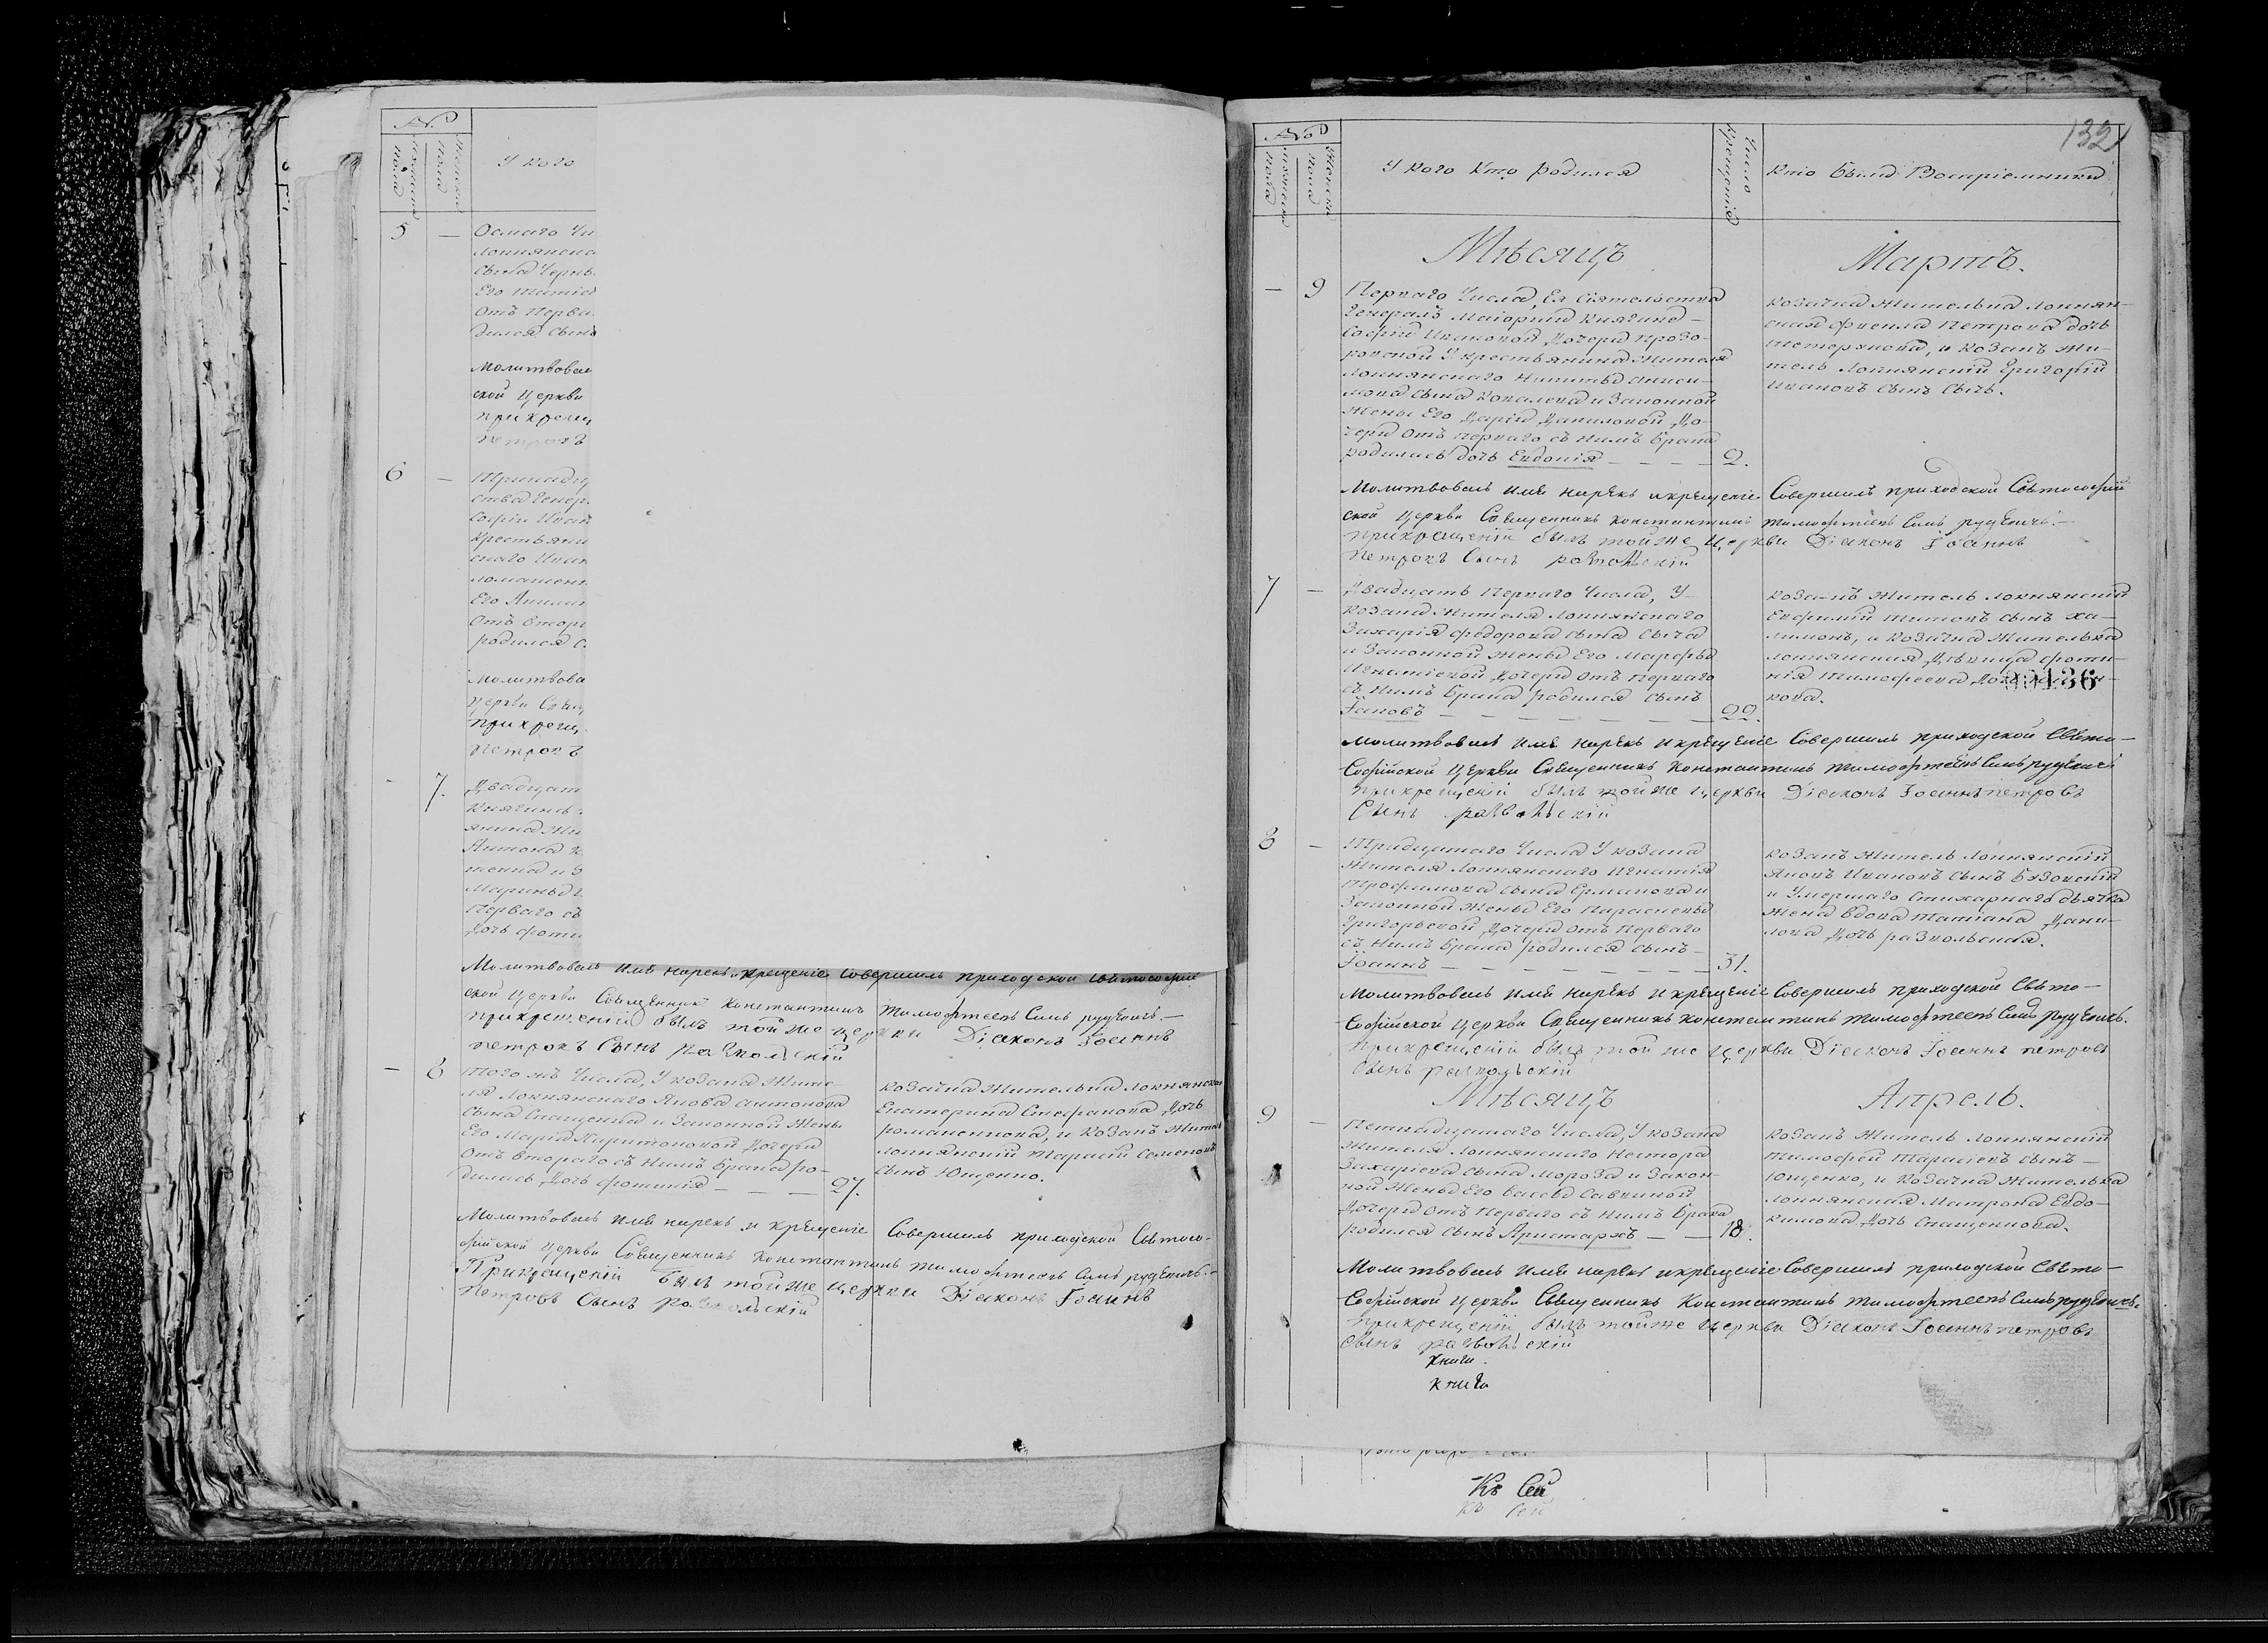 №
мужеска пола
женска пола
У кого
5 — Осмаго Чи
локнянска
сына Черны
Его Татіа
отъ Перва
дился сынъ
Молитвовал
ской Церкви
прикрещ
Петровъ
6 — Тринадц
ства Генер
Софіи Иван
крестьяни
скаго Иван
ломашен
Его Акили
отъ втора
родился с
Молитвова
Церкви Свящ
прикрещ
Петровъ
— 7. Двадцат
Княгинѣ
янина Жи
Антона К
тенка и З
Марины
Перваго съ
дочь Фоти
Молитвовалъ имя нарекъ и крещеніе Совершилъ приходской Свѣтософій
ской Церкви Священникъ Константинъ Тимофѣевъ Сынъ
прикрещеніи былъ тойже церкви Діаконъ Іоаннъ
Петровъ Сынъ Развольскій
— 8 Того жъ Числа, У козака Жите-
ля Локнянскаго Якова Антонова
Сына Спащенка и Законной Жены
Его Маріи Харитоновой Дочери
Отъ втораго съ Нимъ Брака ро-
дилась Дочь Фотинія — — — 27.
козачка Жителька локнянская
Екатерина Стефанова Дочь
романенкова, и Козакъ Житель
локнянскій Тарасій Семеновъ
сынъ Ющенко.
Молитвовалъ имя нарекъ и крещеніе Совершилъ приходской Свѣтосо-
фійской Церкви Священникъ Константинъ Тимофѣевъ Сынъ
Прикрещеніи былъ тойже церкви Діаконъ Іоаннъ
Петровъ Сынъ Развольскій
132
№
мужеска пола
Женска пола
У кого Кто родился
Число крещенія
Кто были Воспріемники
Мѣсяцъ Мартъ.
— 9 Перваго Числа, Ея Сіятельства
Генералъ Маіорши Княгинѣ —
Софіи Ивановой Дочери Прозо-
ровской У крестьянина Жителя
Локнянскаго Никиты Аниси-
мова сына Ковалева и Законной
Жены Его Даріи Даниловой До-
чери отъ перваго съ нимъ брака
родилась дочь Евдокія — — — 2.
козачка Жителька Локнян-
ская Петрова дочь
и Козакъ Жи-
тель Локнянскій Григорій
Ивановъ сынъ Сычъ.
Молитвовалъ имя нарекъ и крещеніе Совершилъ приходской Свѣтософій
ской Церкви Священникъ Константинъ Тимофѣевъ Сынъ
прикрещеніи былъ тойже церкви Діаконъ Іоаннъ
Петровъ Сынъ Развольскій
7 — Двадцать Перваго Числа, У
козака Жителя Локнянскаго
Захарія Федорова сына Сыча
и Законной Жены Его Марфы
Игнатіевой Дочери отъ Перваго
съ Нимъ Брака родился сынъ
Іаковъ — — — — — — 22.
козакъ Житель локнянскій
Евфимій Титовъ сынъ Ха-
лимонъ, и козачка Жителька
локнянская Дѣвица Фоти-
нія Тимофеева Дочь
кова.
436
Молитвовалъ имя нарекъ и крещеніе Совершилъ приходской Свѣто-
Софійской Церкви Священникъ Константинъ Тимофѣевъ Сынъ
прикрещеніи былъ тойже церкви Діаконъ Іоаннъ Петровъ
Сынъ Развольскій
8 — Тридцатаго Числа У козака
Жителя Локнянскаго Игнатія
Трофимова сына Ермакова и
Законной Жены Его Параскевы
Григорьевой Дочери отъ Перваго
съ Нимъ Брака родился сынъ —
Іоаннъ — — — — — — 31.
козакъ Житель локнянскій
Яковъ Ивановъ сынъ
и Умершаго Стихарнаго дьячка
Жена вдова Татіана Дани-
лова Дочь развольская.
Молитвовалъ имя нарекъ и крещеніе Совершилъ приходской Свѣто-
Софійской Церкви Священникъ Константинъ Тимофѣевъ Сынъ
прикрещеніи былъ тойже церкви Діаконъ Іоаннъ Петровъ
Сынъ Развольскій
Мѣсяцъ Апрель.
9 — Петнадцатаго Числа, У козака
Жителя Локнянскаго Нестора
Захаріева сына Мороза и Закон-
ной Жены Его Вассы Саввиной
Дочери отъ Перваго съ Нимъ Брака
родился сынъ Аристархъ — — 18.
козакъ Житель локнянскій
Тимофей Тарасіевъ сынъ —
Ющенко, и козачка Жителька
локнянская Матрона Евдо-
кимова Дочь Спащенкова.
Молитвовалъ имя нарекъ и крещеніе Совершилъ приходской Свѣто-
Софійской Церкви Священникъ Константинъ Тимофѣевъ Сынъ
прикрещеніи былъ тойже церкви Діаконъ Іоаннъ Петровъ
Сынъ Развольскій
Книги.
книга
Къ Сей
Къ Сей